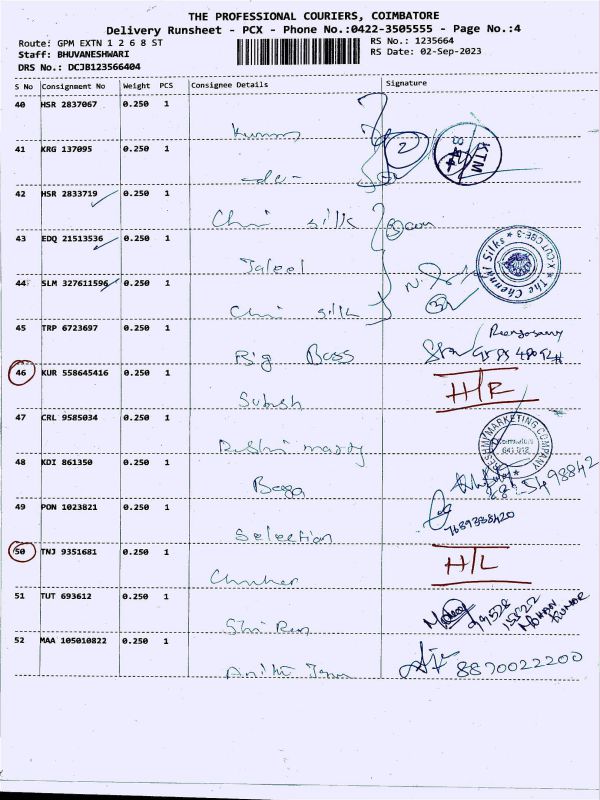 THE PROFESSIONAL COURIERS, COIMBATORE
Delivery Runsheet - PCX - Phone No.:0422-3505555 - Page No.:4
Route: GPM EXTN 1 2 6 8 ST
RS No.: 1235664
Staff: BHUVANESHWARI
RS Date: 02-Sep-2023
DRS No.: DCJB123566404
S No Consignment No Weight PCS Consignee Details Signature
40 HSR 2837067 0.250 1
41 KRG 137095 0.250 1
2
KTM
-do-
42 HSR 2833719 0.250 1
Chni silk
43 EDQ 21513536 0.250 1
Jaleel
The Chennai Silks
44 SLM 327611596 0.250 1
Chni silk
45 TRP 6723697 0.250 1
Big Boss
46 KUR 558645416 0.250 1
H/R
Subish
47 CRL 9585034 0.250 1
MARKETING COMPANY
641 012
48 KDI 861350 0.250 1
49 PON 1023821 0.250 1
7689338420
Selection
50 TNJ 9351681 0.250 1
H/L
51 TUT 693612 0.250 1
MOHAN KUMAR
Shi Ram
52 MAA 105010822 0.250 1
8870022200